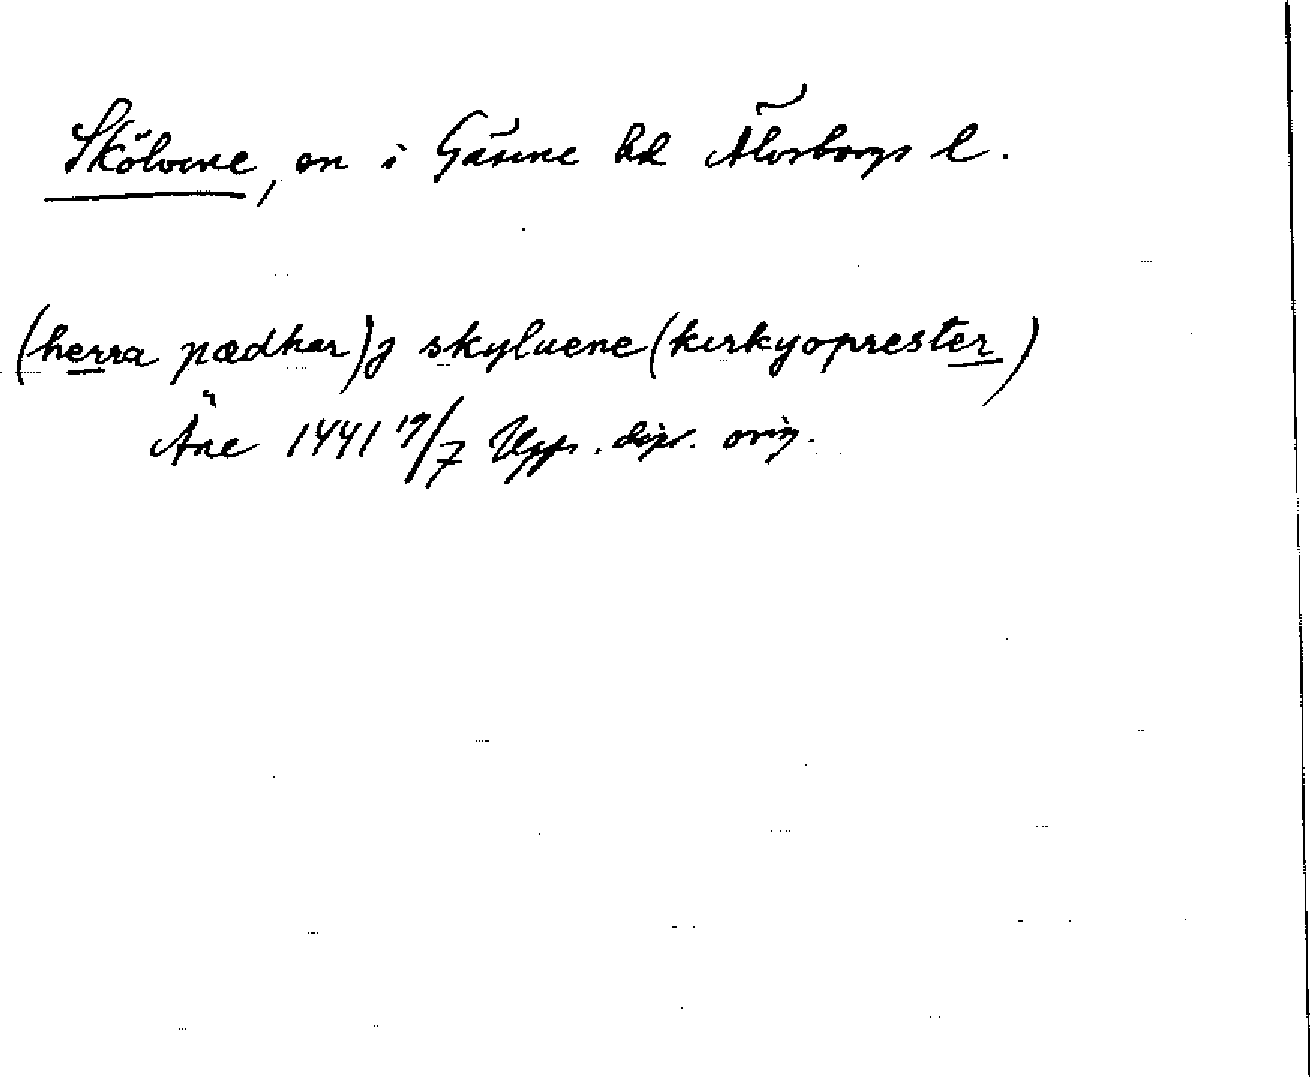 Skölvene, sn i Gäsene hd Älvsborgs l.
(herra pædhar) j skyluene (kirkyoprester)
Äne 1441 19/7 Upps. dipl. orig.